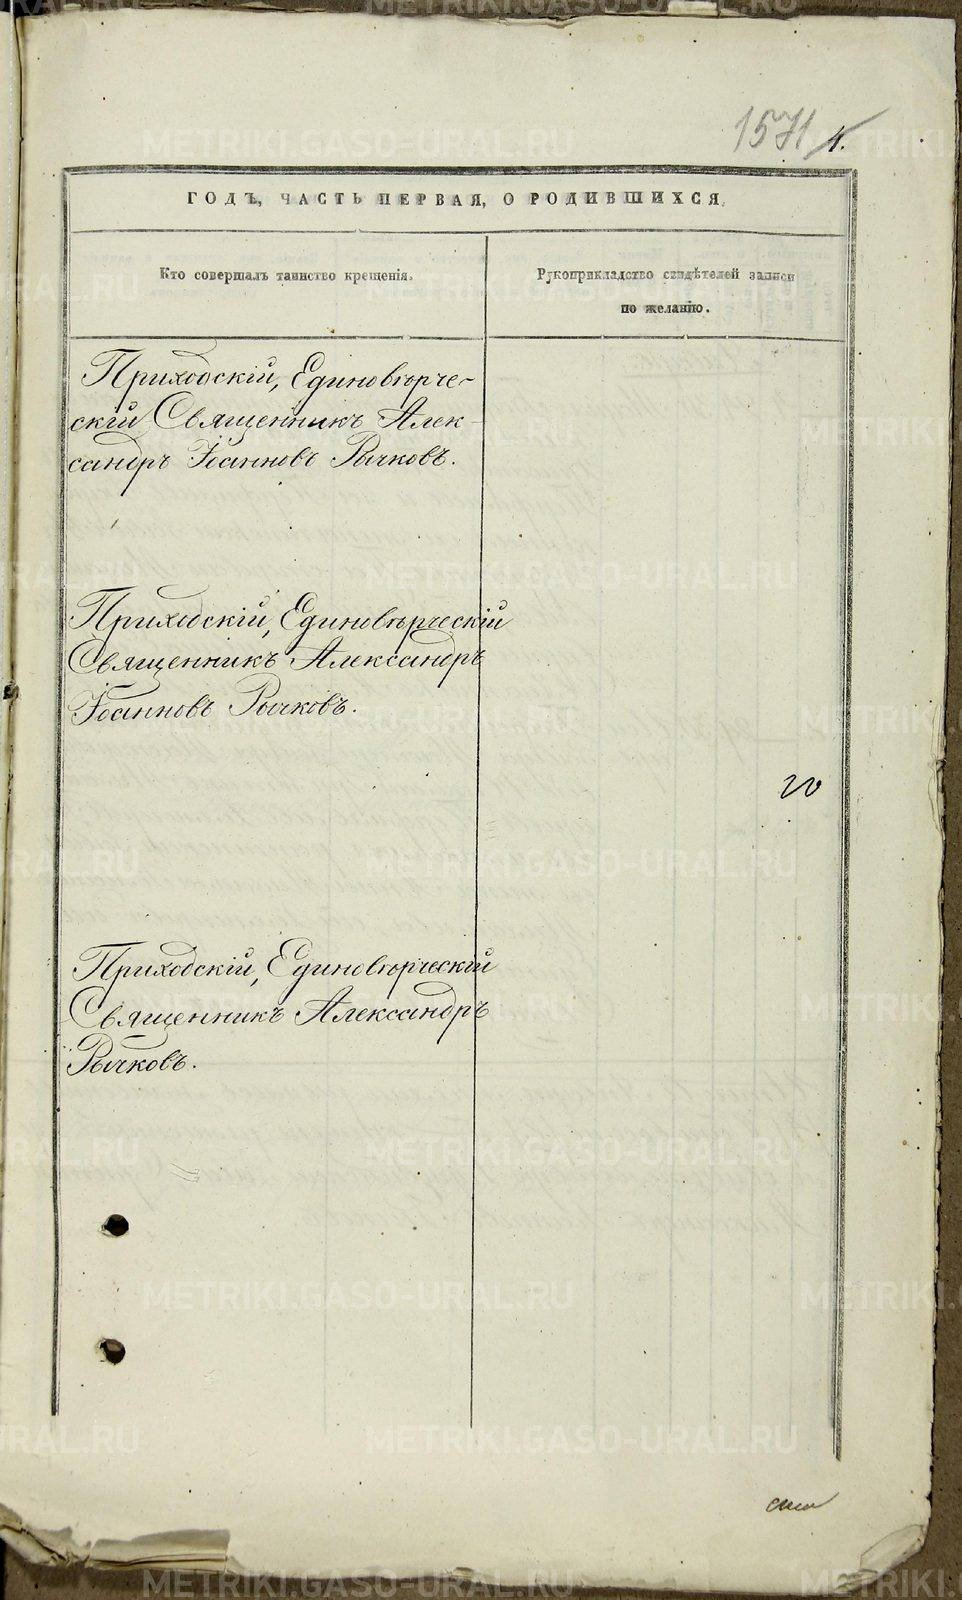 1571 4.
ГОДЪ, ЧАСТЬ ПЕРВАЯ, О РОДИВШИХСЯ.
Кто совершалъ таинство крещенія.
Рукоприкладство свидѣтелей записи
по желанію.
Приходскій, Единовѣрче-
скій Священникъ Алек-
сандръ Іоанновъ Рычковъ.
Приходскій, Единовѣрческій
Священникъ Александръ
Іоанновъ Рычковъ.
Приходскій, Единовѣрческій
Священникъ Александръ
Рычковъ.
METRIKI.GASO-URAL.RU